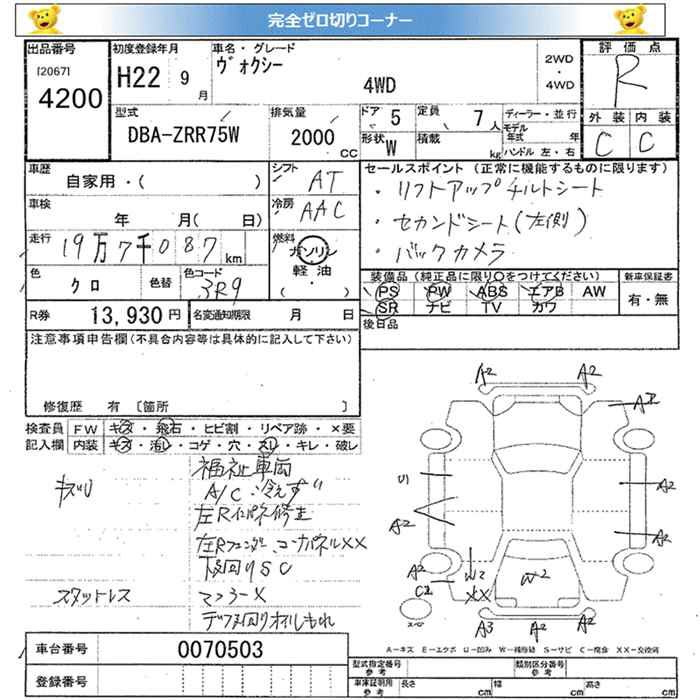 完全ゼロ切りコーナー
出品番号
[2067]
4200
初度登録年月
H22 9月
車名・グレード
ヴォクシー
4WD
2WD
・
4WD
評価点
R
外装 内装
C C
型式
DBA-ZRR75W
排気量
2000 CC
ドア 5
形状 W
定員 7人
積載 kg
ディーラー・並行
モデル年式 年
ハンドル 左・右
車歴
自家用・( )
車検
年 月( 日)
走行
19万7千087km
色
クロ
色替
色コード
3R9
シフト
AT
冷房
AAC
燃料
ガソリン
軽油
( ・ )
セールスポイント(正常に機能するものに限ります)
・リフトアップチルトシート
・セカンドシート(左側)
・バックカメラ
装備品(純正品に限り○をつけてください)
PS PW ABS エアB AW
SR ナビ TV カワ
新車保証書
有・無
後日品
R券 13,930円
名変通知期限 月 日
注意事項申告欄(不具合内容等は具体的に記入して下さい)
修復歴 有 〔箇所 〕
検査員記入欄
FW キズ・飛石・ヒビ割・リペア跡・×要
内装 キズ・汚レ・コゲ・穴・スレ・キレ・破レ
福祉車両
A/C冷えず
左Rインパネ修正
左Rフェンダー、コーナパネルXX
下回りSC
スタットレス
マフラーX
デフ回りオイルもれ
A2 A2
A2
U1
A2
A2
A2
A2
C2
W2
XX
W2
A3 A2 A2
スペア
A-キズ E-エクボ U-凹み W-補修跡 S-サビ C-腐食 XX-交換済
車台番号 0070503
登録番号
型式指定番号 参考
類別区分番号 参考
車庫証明用 参考
長さ cm
幅 cm
高さ cm